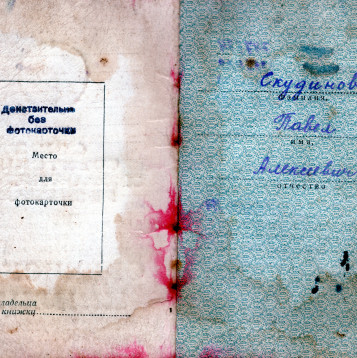 Действительно
без
фотокарточки
Место
для
фотокарточки
владельца
книжку
1
Скудинов
фамилия
Павел
имя
Алексеевич
отчество